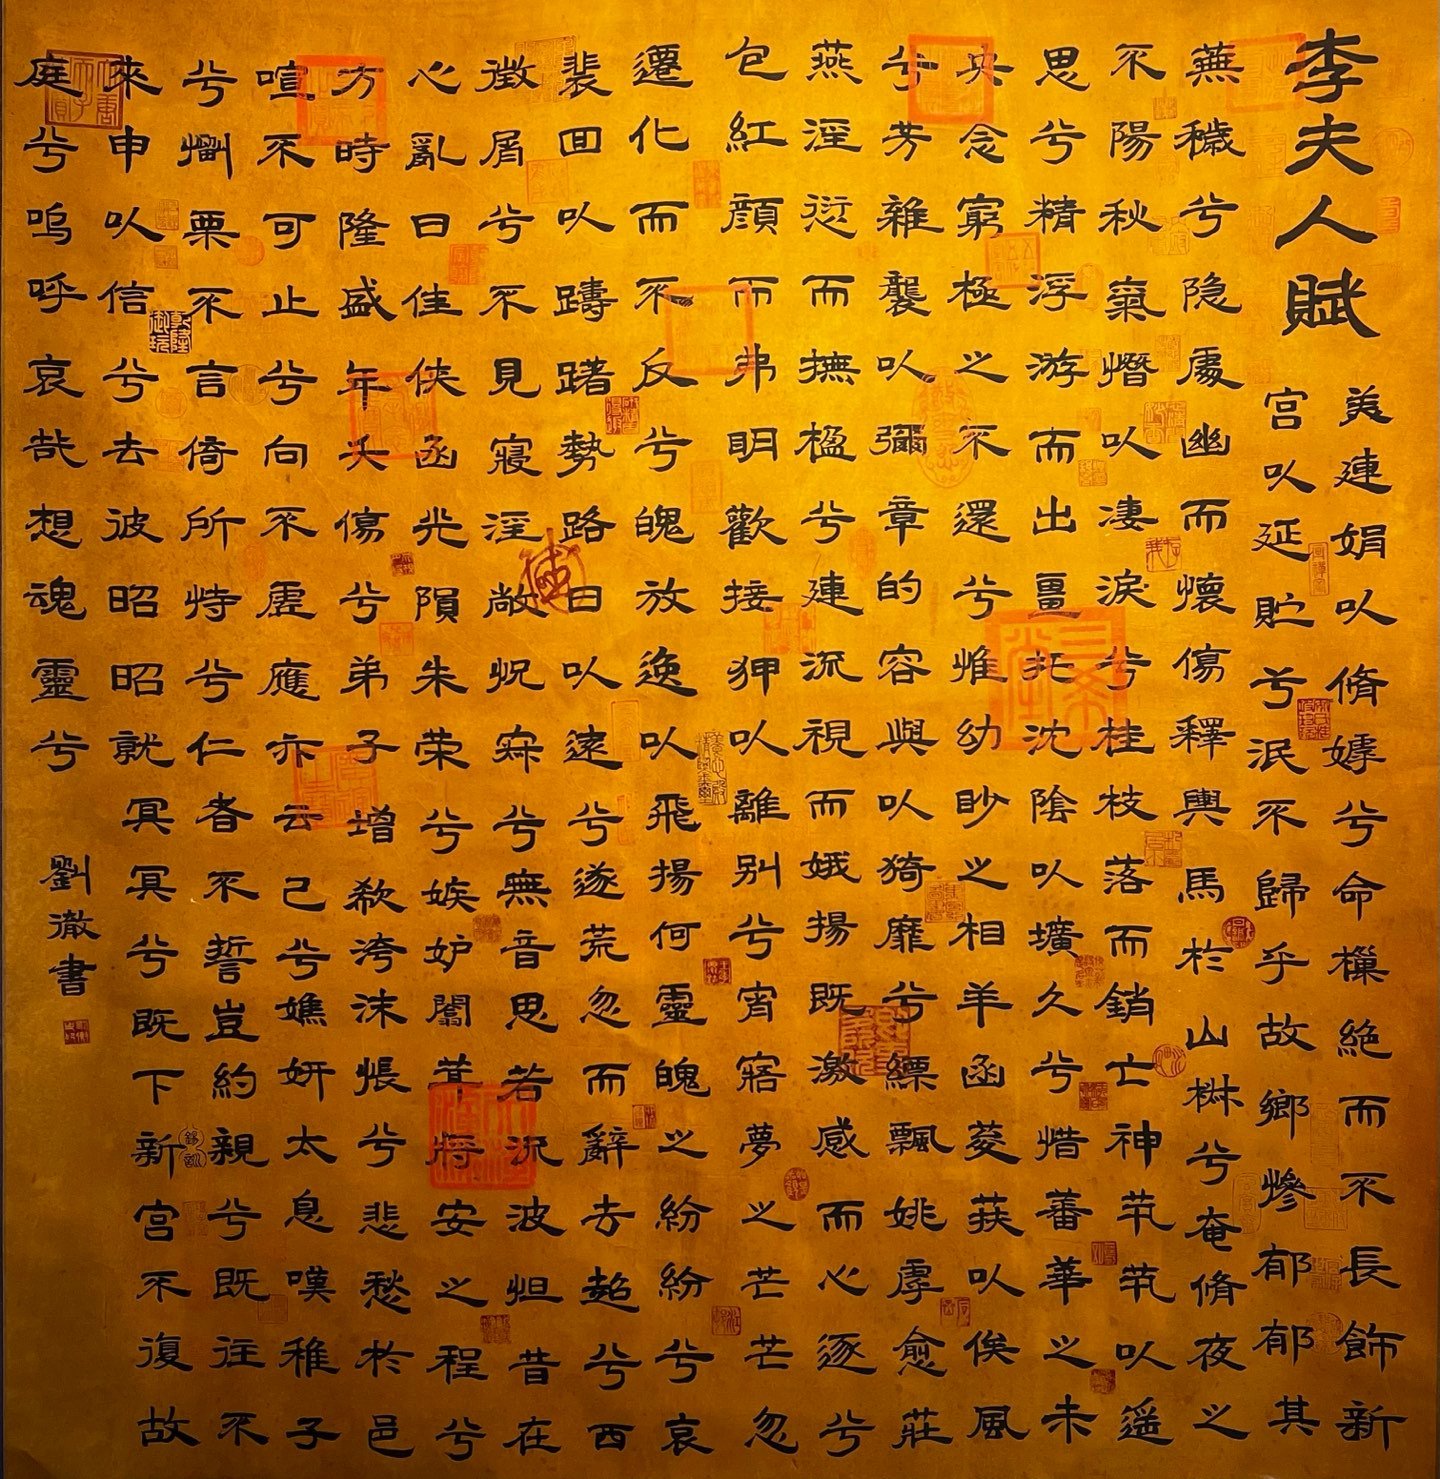 李夫人賦
美連娟以脩嫮兮命樔絕而不長飾新
宮以延貯兮泯不歸乎故鄉慘郁郁其
蕪穢兮隐處幽而懷傷釋輿馬於山椒兮奄脩夜之
不陽秋氣憯以凄淚兮桂枝落而銷亡神茕茕以遥
思兮精浮游而出畺托沈陰以壙久兮惜蕃華之未
央念窮極之不還兮惟幼眇之相羊函菱荴以俟風
兮芳雜襲以彌章的容與以猗靡兮縹飄姚虖愈莊
燕淫衍而撫楹兮連流視而娥揚既激感而心逐兮
包紅顏而弗明歡接狎以離別兮宵寤夢之芒芒忽
遷化而不反兮魄放逸以飛揚何靈魄之紛紛兮哀
裴回以躊躇勢路日以遠兮遂荒忽而辭去超兮西
徵屑兮不見寖淫敞怳寂兮無音思若流波怛昔在
心亂曰佳俠函光隕朱榮兮嫉妒闟茸將安之程兮
方時隆盛年夭傷兮弟子增欷洿沫悵兮悲愁於邑
喧不可止兮向不虛應亦云己兮嫶妍太息嘆稚子
兮懰栗不言倚所恃兮仁者不誓豈約親兮既往不
來申以信兮去彼昭昭就冥冥兮既下新宮不復故
庭兮嗚呼哀哉想魂靈兮
劉徹書
三希堂
乾隆御玩